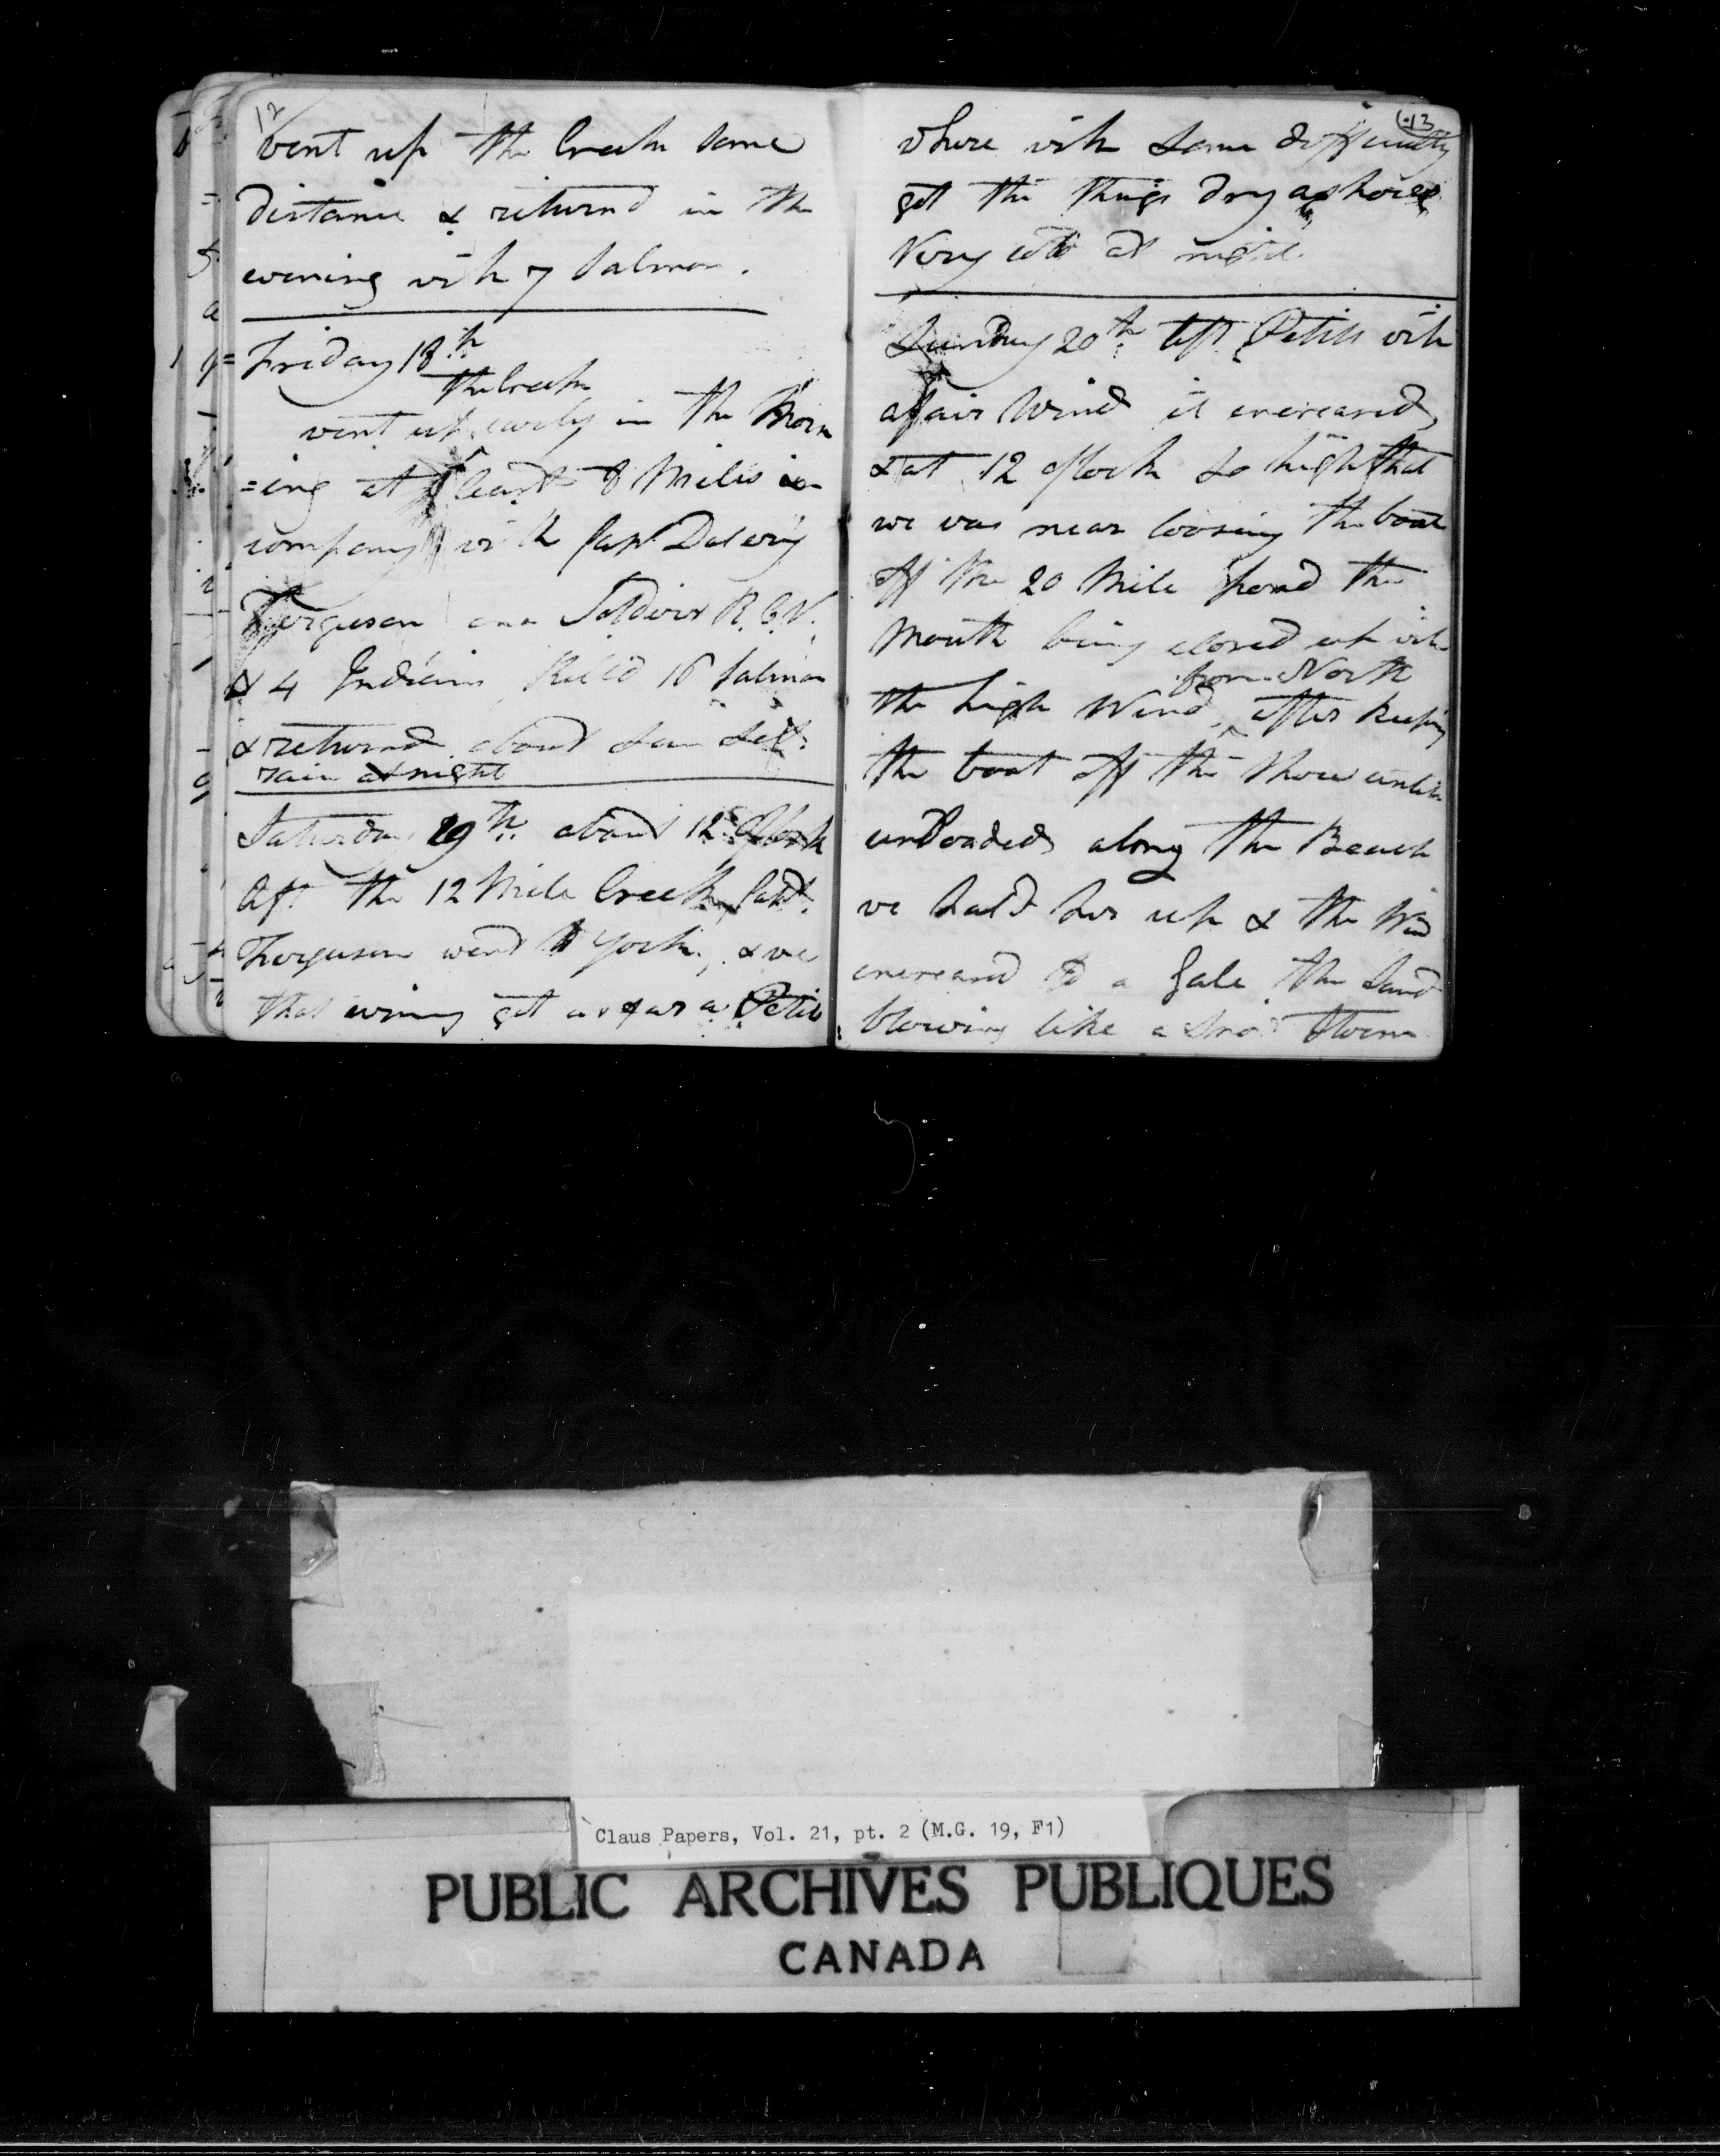 12
went up the Creek some
distance & returnd in the
evening with 7 Salmon.
Friday 18th
the Creek
went up early in the Morn
=ing at least 8 Miles in
company with Capt
Ferguson one Soldier R.C.V.
& 4 Indians Kill'd 16 Salmon
& returnd about Sun Set.
rain at night
Saturday 19th. about 12 oClock
left the 12 Mile Creek, Capt.
Ferguson went to York, & we
that evening got as far as Petits
13
where with some difficulty
got the things dry ashore
Very cold at night
Sunday 20th. left Petits with
a fair Wind it encreased
& at 12 oClock so high that
we was near loosing the boat
off the 20 Mile pond the
Mouth being closed up with
from North
the high Wind, after keeping
the boat off the Shore untill
unloaded along the Beach
we hald her up & the Wind
encreasd to a Gale the Sand
blowing like a Snow Storm
Claus Papers, Vol. 21, pt. 2 (M.G. 19, F1)
PUBLIC ARCHIVES PUBLIQUES
CANADA